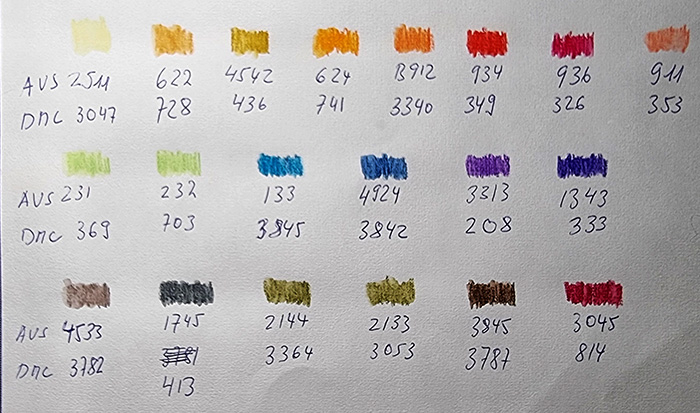 AVS 2511 622 4542 624 B912 934 936 911
DMC 3047 728 436 741 3340 349 326 353
AVS 231 232 133 4924 3313 1343
DMC 369 703 3845 3842 208 333
AVS 4533 1745 2144 2133 3845 3045
DMC 3782 3364 3053 3787 814
413